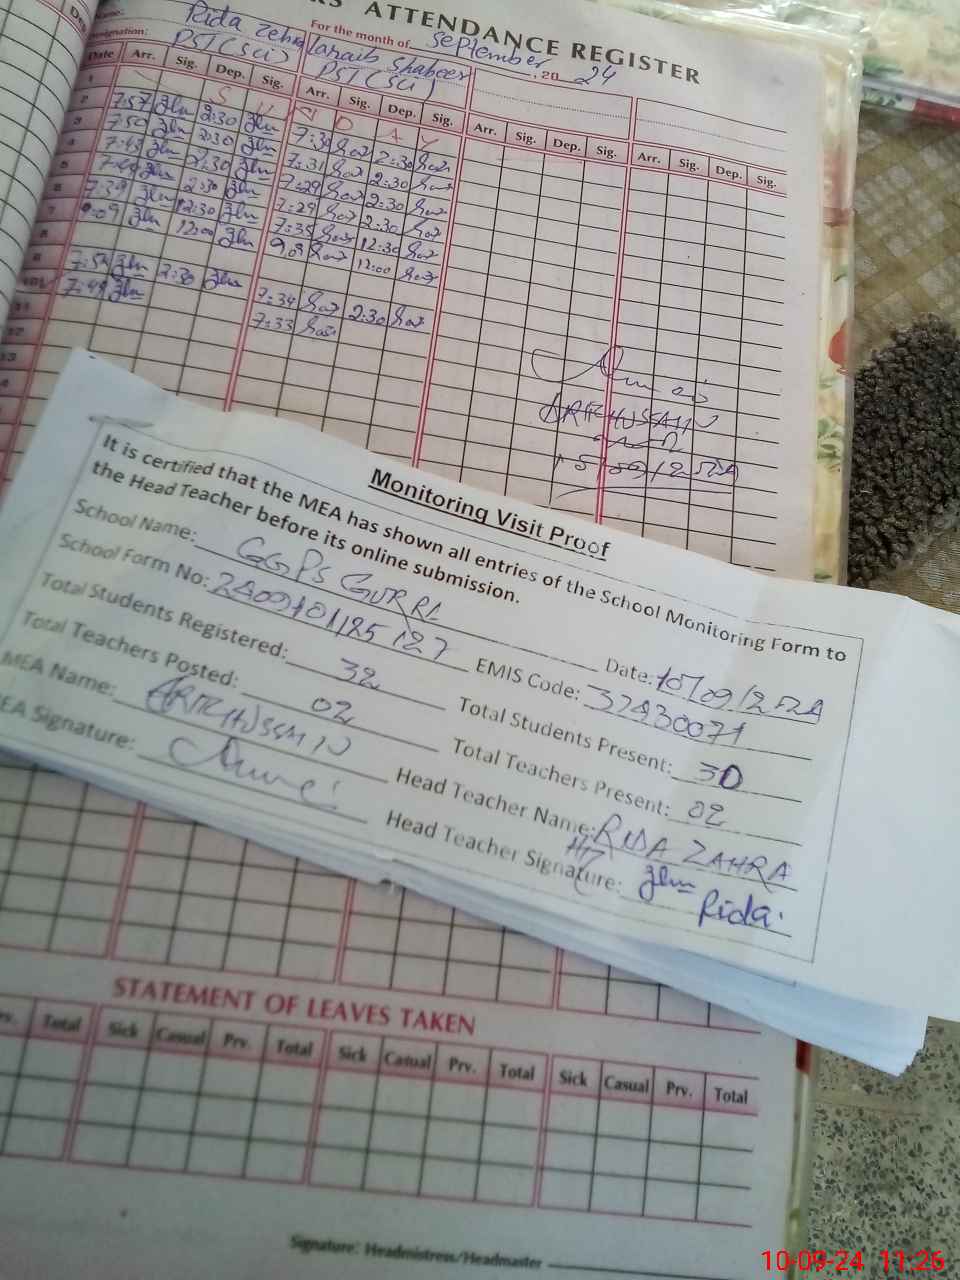 RS ATTENDANCE REGISTER
Name: Rida Zehra Laraib Shabeer
For the month of September, 20 24
Designation: PST (Sci) PST (Sci)
Date Arr. Sig. Dep. Sig. Arr. Sig. Dep. Sig. Arr. Sig. Dep. Sig. Arr. Sig. Dep. Sig.
1 S U N D A Y
2 7:57 2:30 7:30 2:30
3 7:50 2:30 7:31 2:30
4 7:43 2:30 7:29 2:30
5 2:30 7:29 2:30
6 7:39 12:30 7:35 12:30
7 9:09 12:00 9:09 12:00
8
9 7:54 2:30 7:34 2:30
10 7:48 7:33
11
12
13
Monitoring Visit Proof
It is certified that the MEA has shown all entries of the School Monitoring Form to
the Head Teacher before its online submission.
School Name: GGPS GURRA Date: 10/09/2024
School Form No: EMIS Code: 32430071
Total Students Registered: 32 Total Students Present: 30
Total Teachers Posted: 02 Total Teachers Present: 02
MEA Name: Head Teacher Name: RIDA ZAHRA
MEA Signature: Head Teacher Signature: Rida.
STATEMENT OF LEAVES TAKEN
Prv. Total Sick Casual Prv. Total Sick Casual Prv. Total Sick Casual Prv. Total
Signature: Headmistress/Headmaster
10-09-24 11:26